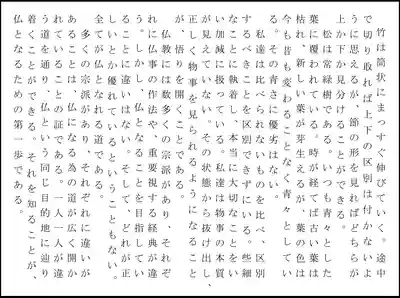 竹は筒状にまっすぐ伸びていく。途中
で切り取れば上下の区別は付かないよ
うに思えるが、節の形を見ればどちらが
上か下か見分けることができる。
松は常緑樹である。いつも青々とした
葉に覆われている。時が経てば古い葉は
枯れ、新しい葉が芽生えるが、葉の色は
今も昔も変わることなく青々としてい
る。その青さに優劣はない。
私達は比べられないものを比べ、区別
するべきことを区別できずにいる。些細
なことに執着し、本当に大切なことをい
い加減に扱っている。私達は物事の本質
が見えていない。その状態から抜け出し、
正しく物事を見られるようになること
が、悟りを開くことである。
仏教には数多くの宗派があり、それぞ
れに仏事の作法や、重要視する経典が違
う。しかし、仏となることを目指してい
ることに違いはない。そして、どれが正
しいとか優れているということもない。
全てが仏となれる道である。
多くの宗派があり、それぞれに違いが
あることは、仏になる為の道が広く開か
れていることの証である。一人一人が違
う道を通り、仏という同じ目的地に辿り
着くことができる。それを知ることが、
仏となるための第一歩である。